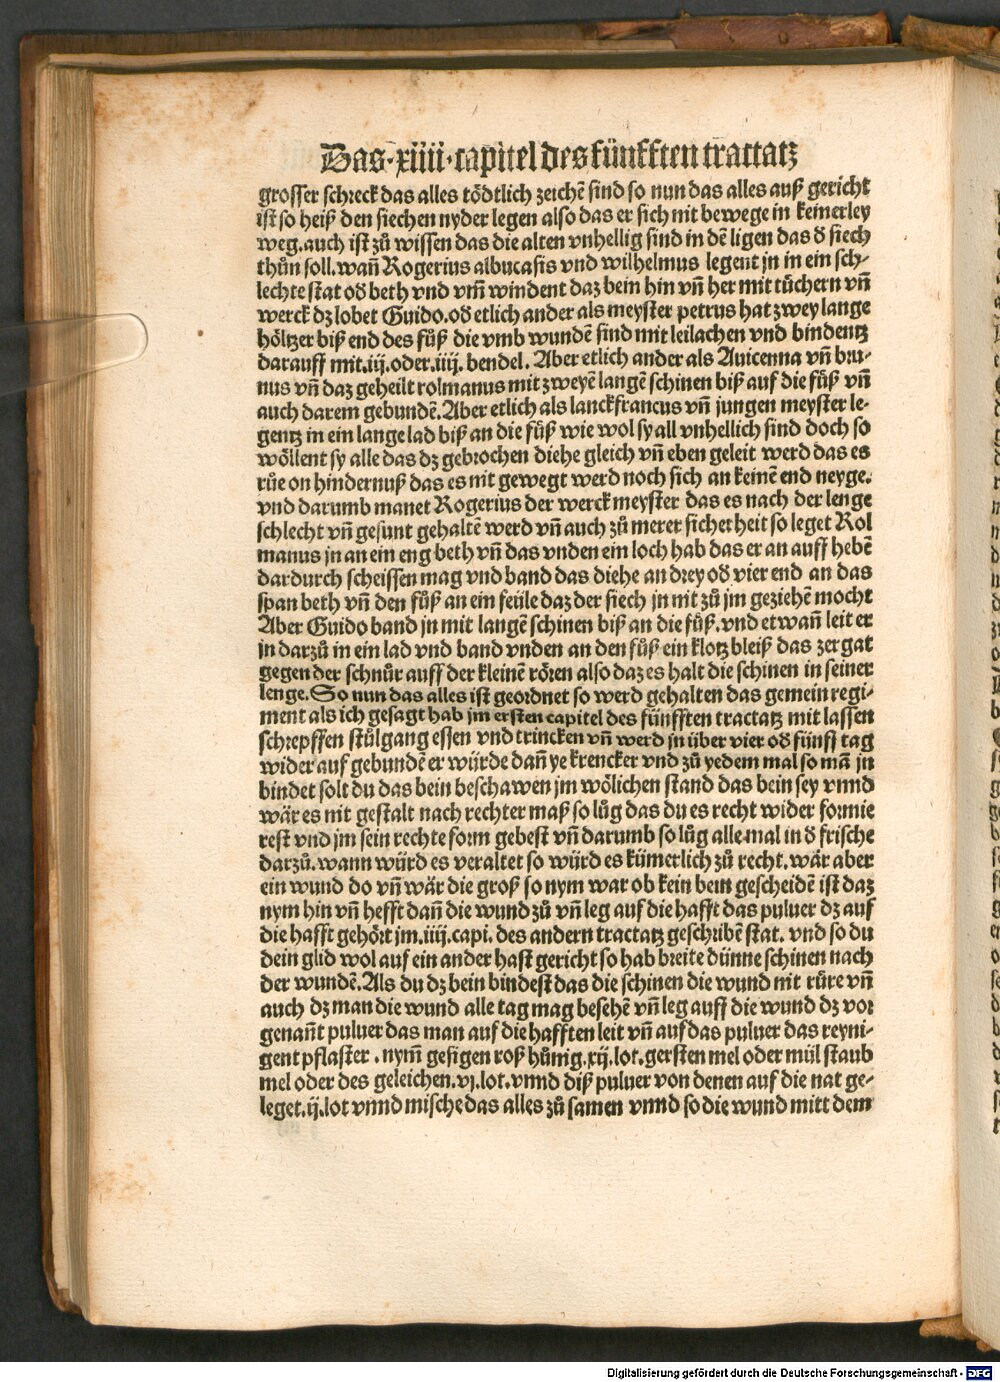 Das·xiiii·capitel des fünfften tractatz
grosser schreck das alles tödtlich zeichē sind so nun das alles auß gericht
ist so heiß den siechen nyder legen also das er sich nit bewege in keinerley
weg. auch ist zů wissen das die alten vnhellig sind in dē ligen das d̕ siech
thůn soll. wañ Rogerius albucasis vnd wilhelmus legent jn in ein sch⸗
lechte stat od̕ beth vnd vm̄ windent daz bein hin vñ her mit tüchern vñ
werck dz lobet Guido. od̕ etlich ander als meyster petrus hat zwey lange
höltzer biß end des fůß die vmb wundē sind mit leilachen vnd bindentz
darauff mit.iij.oder.iiij. bendel. Aber etlich ander als Auicenna vñ bru⸗
nus vñ daz geheilt rolmanus mit zweyē langē schinen biß auf die fůß vñ
auch darem gebundē. Aber etlich als lanckfrancus vñ jungen meyster le⸗
gentz in ein lange lad biß an die füß wie wol sy all vnhellich sind doch so
wöllent sy alle das dz gebrochen diehe gleich vñ eben geleit werd das es
růe on hindernuß das es nit gewegt werd noch sich an keinē end neyge.
vnd darumb manet Rogerius der werck meyster das es nach der lenge
schlecht vñ gesunt gehaltē werd vñ auch zů merer sicherheit so leget Rol
manus jn an ein eng beth vñ das vnden ein loch hab das er an auff hebē
dardurch scheissen mag vnd band das diehe an drey od̕ vier end an das
span beth vñ den fůß an ein seüle daz der siech jn nit zů jm geziehē mocht
Aber Guido band jn mit langē schinen biß an die fůß. vnd etwañ leit er
jn darzů in ein lad vnd band vnden an den fůß ein klotz bleiß das zer gat
gegen der schnůr auff der kleinē rören also daz es halt die schinen in seiner
lenge. So nun das alles ist geordnet so werd gehalten das gemein regi⸗
ment als ich gesagt hab jm ersten capitel des fünfften tractatz mit lassen
schrepffen stůlgang essen vnd trincken vñ werd jn über vier od̕ fünff tag
wider auf gebundē er würde dañ ye krencker vnd zů yedem mal so mā jn
bindet solt du das bein beschawen jm wölichen stand das bein sey vnnd
wär es nit gestalt nach rechter maß so lůg das du es recht wider formie
rest vnd jm sein rechte form gebest vñ darumb so lůg alle mal in d̕ frische
darzů. wann würd es veraltet so würd es kümerlich zů recht. wär aber
ein wund do vñ wär die groß so nym war ob kein bein gescheidē ist daz
nym hin vñ hefft dañ die wund zů vñ leg auf die hafft das puluer dz auf
die hafft gehört jm.iiij.capi. des andern tractatz geschribē stat. vnd so du
dein glid wol auf ein ander hast gericht so hab breite dünne schinen nach
der wundē. Als du dz bein bindest das die schinen die wund nit rüre vñ
auch dz man die wund alle tag mag besehē vñ leg auff die wund dz vor
genañt puluer das man auf die hafften leit vñ auf das puluer das reyni⸗
gent pflaster. nym̄ gesigen roß hůnig.xij.lot. gersten mel oder mül staub
mel oder des geleichen.vj.lot. vnnd diß puluer von denen auf die nat ge⸗
leget.ij.lot vnnd mische das alles zů samen vnnd so die wund mitt dem
Digitalisierung gefördert durch die Deutsche Forschungsgemeinschaft - DFG